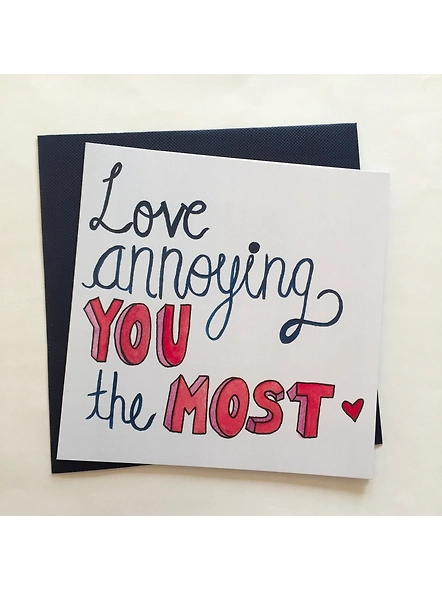 Love
annoying
YOU
the MOST